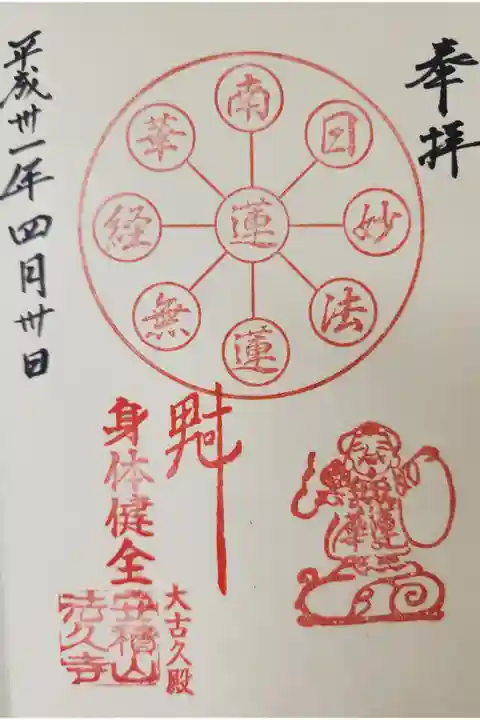 奉拝
南
日
妙
法
蓮
無
経
華
蓮
身体健全
大古久殿
安積山
法久寺
平成卅一年四月卅日